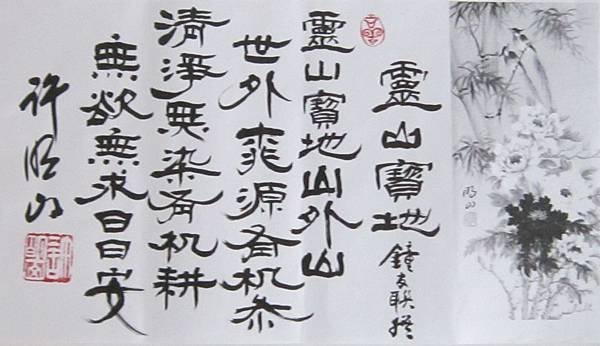 靈山寶地 鐘友聯撰
靈山寶地山外山
世外桃源有机茶
清淨無染有机耕
無欲無求日日安
許明山
明山